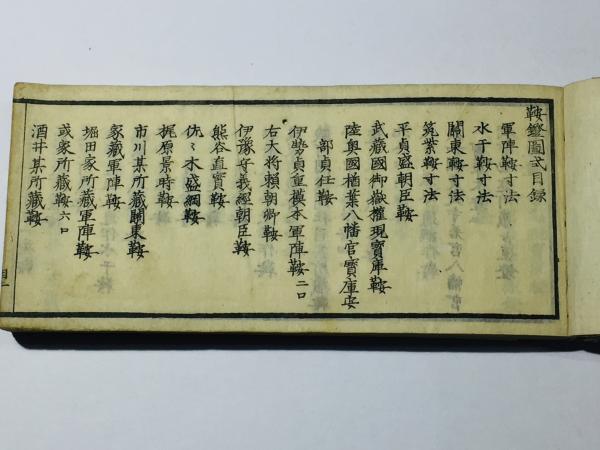 鞍鐙圖式目録
軍陣鞍寸法
水干鞍寸法
關東鞍寸法
筑紫鞍寸法
平貞盛朝臣鞍
武藏國御嶽權現寶庫鞍
陸奥國楢葉八幡宮寶庫安
部貞任鞍
伊勢貞重模本軍陣鞍二口
右大将頼朝卿鞍
伊豫守義經朝臣鞍
熊谷直實鞍
佐々木盛綱鞍
梶原景時鞍
市川某所藏關東鞍
家藏軍陣鞍
堀田家所藏軍陣鞍
或家所藏鞍六口
酒井某所藏鞍